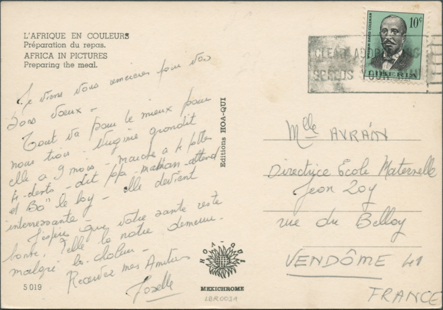 L'AFRIQUE EN COULEURS
Préparation du repas.
AFRICA IN PICTURES
Preparing the meal.
Je viens vous remercier pour vos
bons vœux -
Tout va pour le mieux pour
nous trois - Virginie grandit
elle a 9 mois - marche à 4 pattes
4 dents - dit papa - maman - attend
et "Bô" le boy - elle devient
intéressante -
J'espère que votre santé reste
bonne. Telle la nôtre demeure
malgré la chaleur -
Recevez mes Amitiés
Josette
Editions HOA-QUI
10c
LIBERIA
CLEAR ADDRESSING
SPEEDS YOUR
Mlle AVRAIN
Directrice Ecole Maternelle
Jean Zoy
rue du Belloy
VENDÔME 41
FRANCE
HOA QUI
MEXICHROME
5019